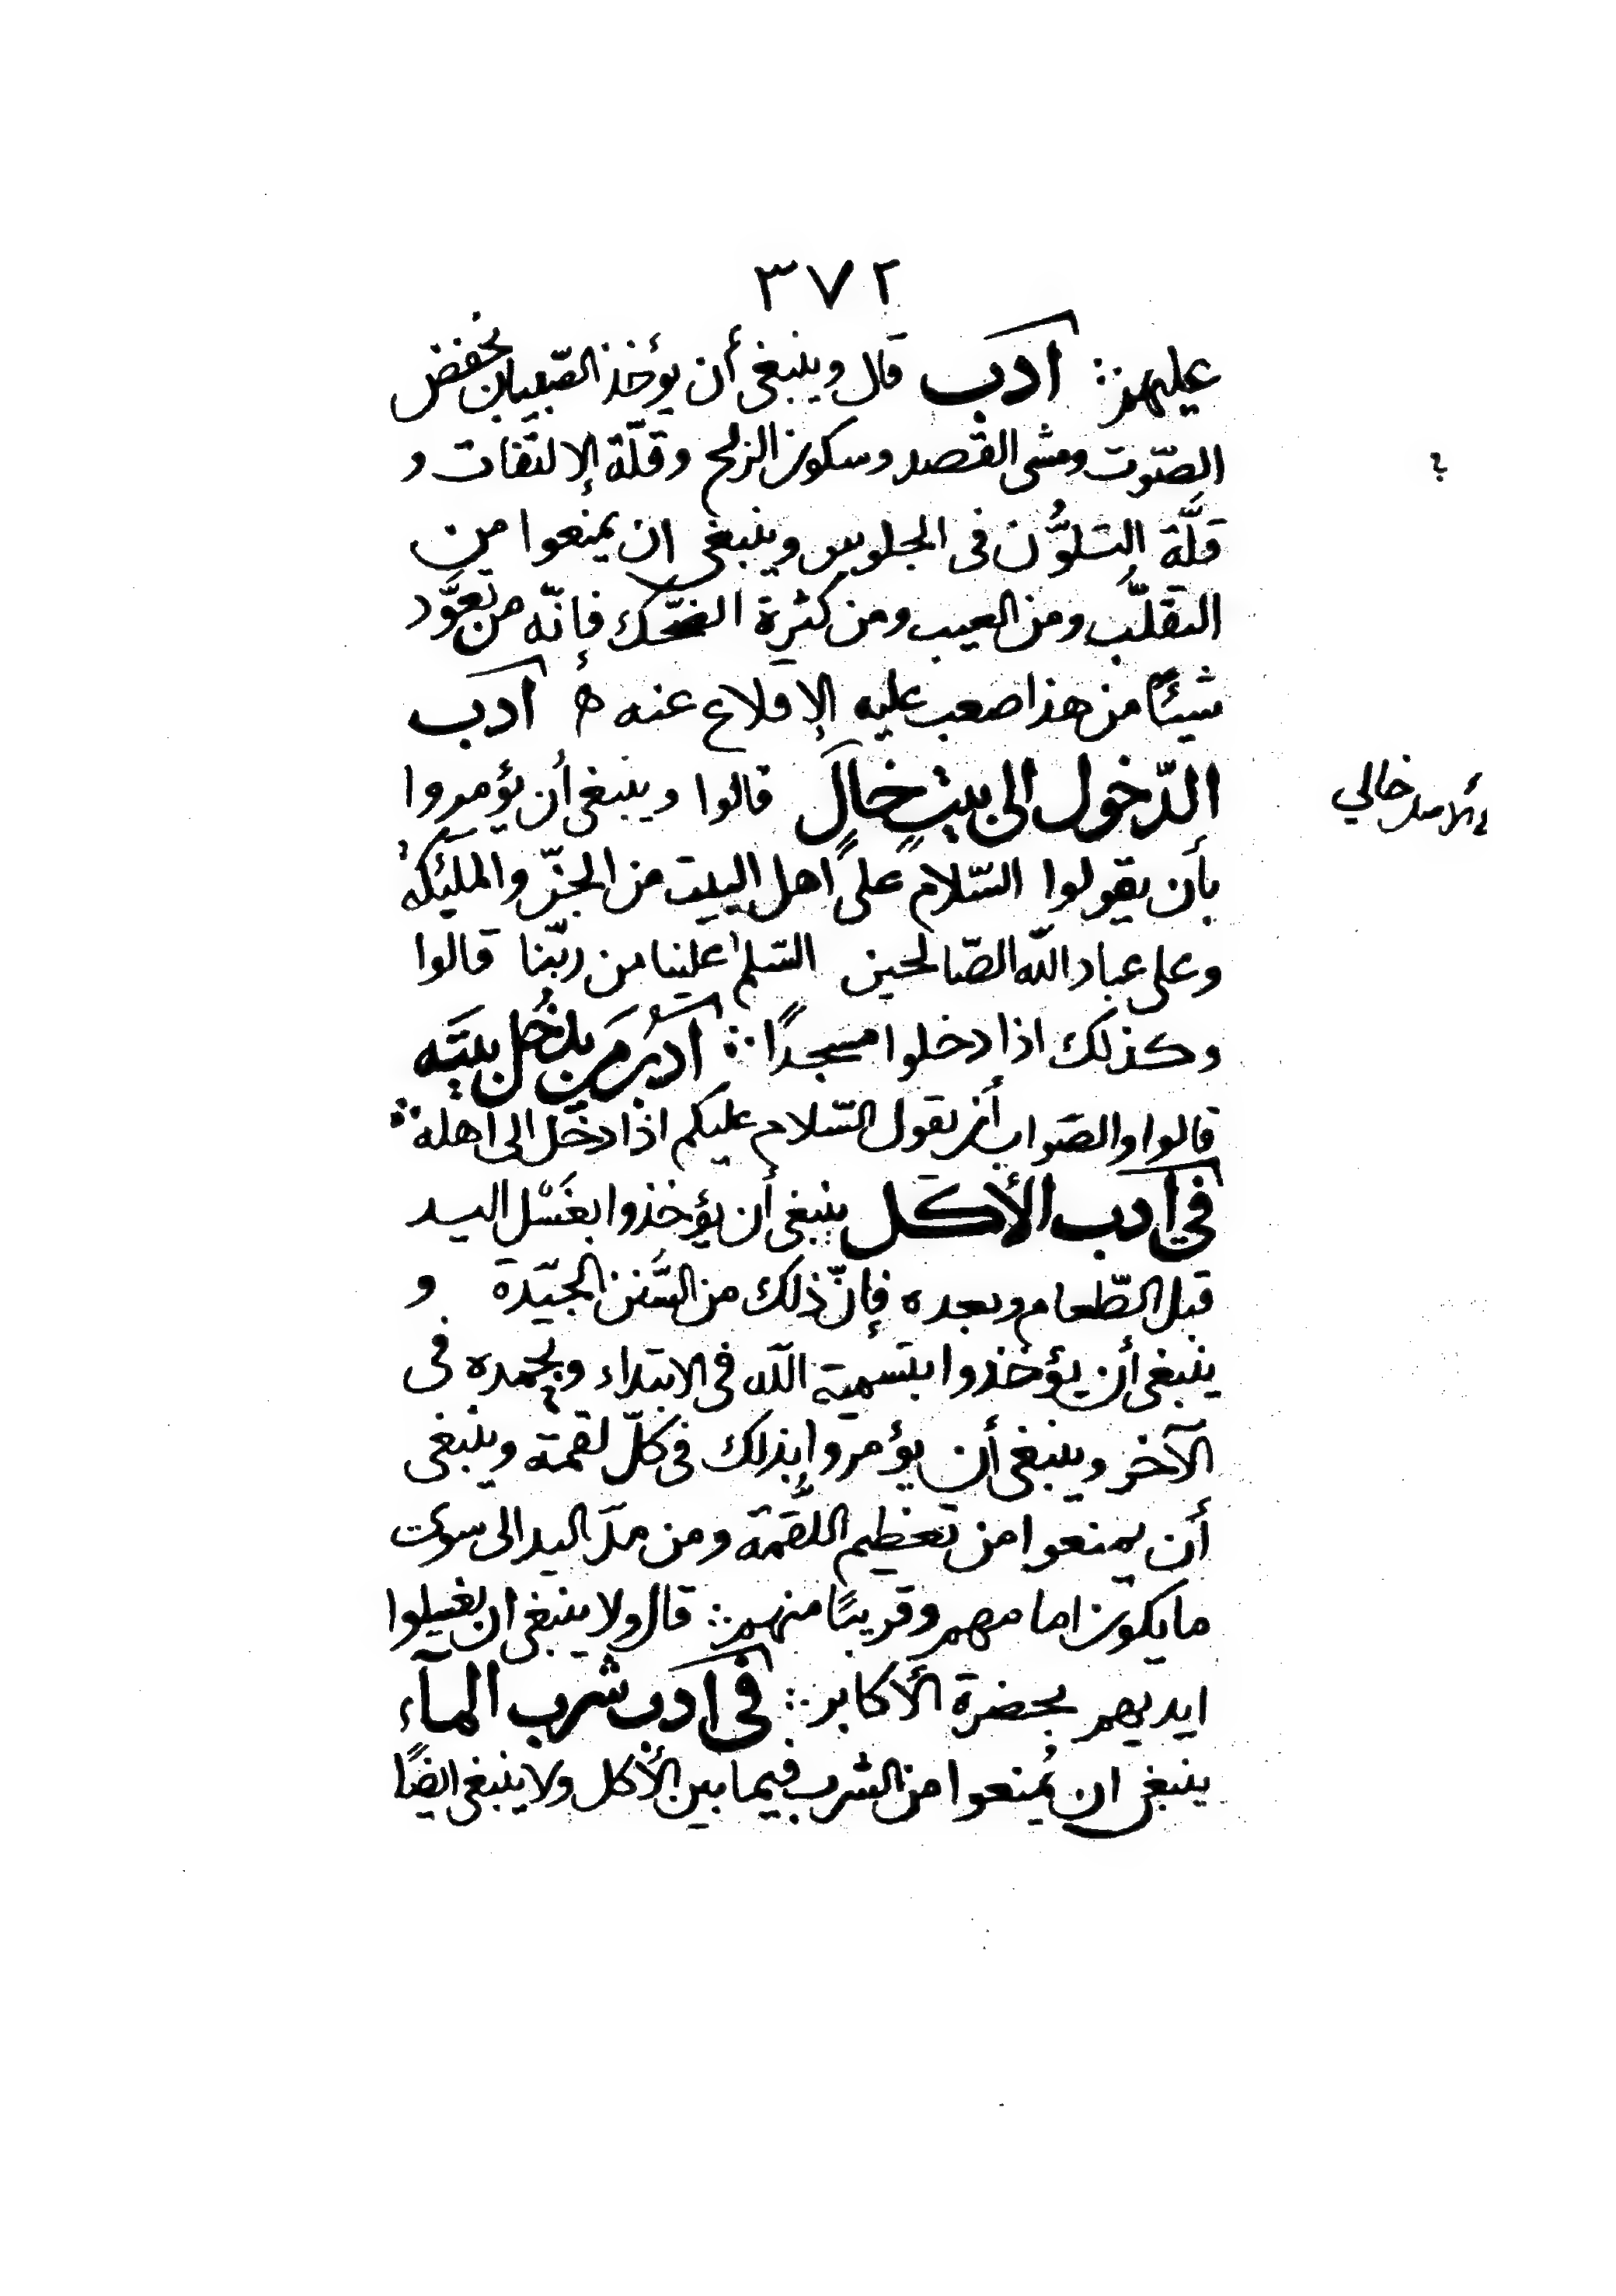 ٣٧٢
عليهن ∴ ادب قال وينبغى أن يؤخذ الصّبيان بخفض
الصّوت ومشى القصد وسكون الريح وقلّة الإلتفات و
قلَّة التلوُّن فى الجلوس وينبغى ان يمنعوا من
التقلُّب ومن العيب ومن كثرة الضحك فإنّه من تعوَّد
شيئًا من هذا صعب عليه الإقلاع عنه ه ادب
الدّخول الى بيتٍ خالٍ قالوا وينبغى أن يؤمروا
بأن يقولوا السّلام على اهل البيت من الجنّ والملئكة
وعلى عباد اللّه الصّالحين السّلم علينا من ربّنا قالوا
وكذلك اذا دخلوا مسجدًا ∴ ادبُ من يدخُل بيتَه
قالوا والصَواب أن يقول السّلام عليكم اذا دخل الى اهله ∴
في ادب الأكل ينبغى أن يؤخذوا بغَسْل اليد
قبل الطّعام وبعده فإنّ ذلك من السُّنن الجيّدة و
ينبغى أن يؤخذوا بتسمية اللّه فى الابتداء وبحمده فى
الآخر وينبغى أن يؤمروا بذلك فى كلّ لقمة وينبغى
أن يمنعوا من تعظيم اللُّقمة ومن مدّ اليد الى سوى
ما يكون امامهم وقريبًا منهم ∴ قال ولا ينبغى ان يغسلوا
ايديهم بحضرة الأكابر ∴ فى ادب شرب المآء
ينبغى ان يُمنعوا من الشرب فيما بين الأكل ولا ينبغى ايضًا
؟
الاصل خالي